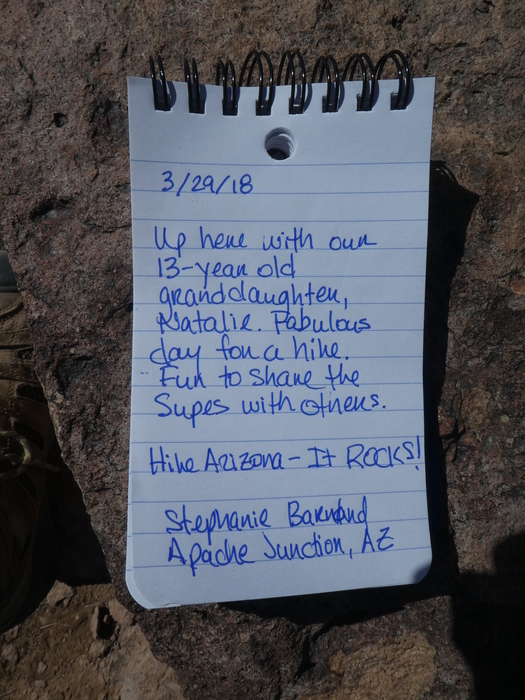 3/29/18
Up here with our
13-year old
granddaughter,
Natalie. Fabulous
day for a hike.
Fun to share the
Supes with others.
Hike Arizona - It ROCKS!
Stephanie
Apache Junction, AZ